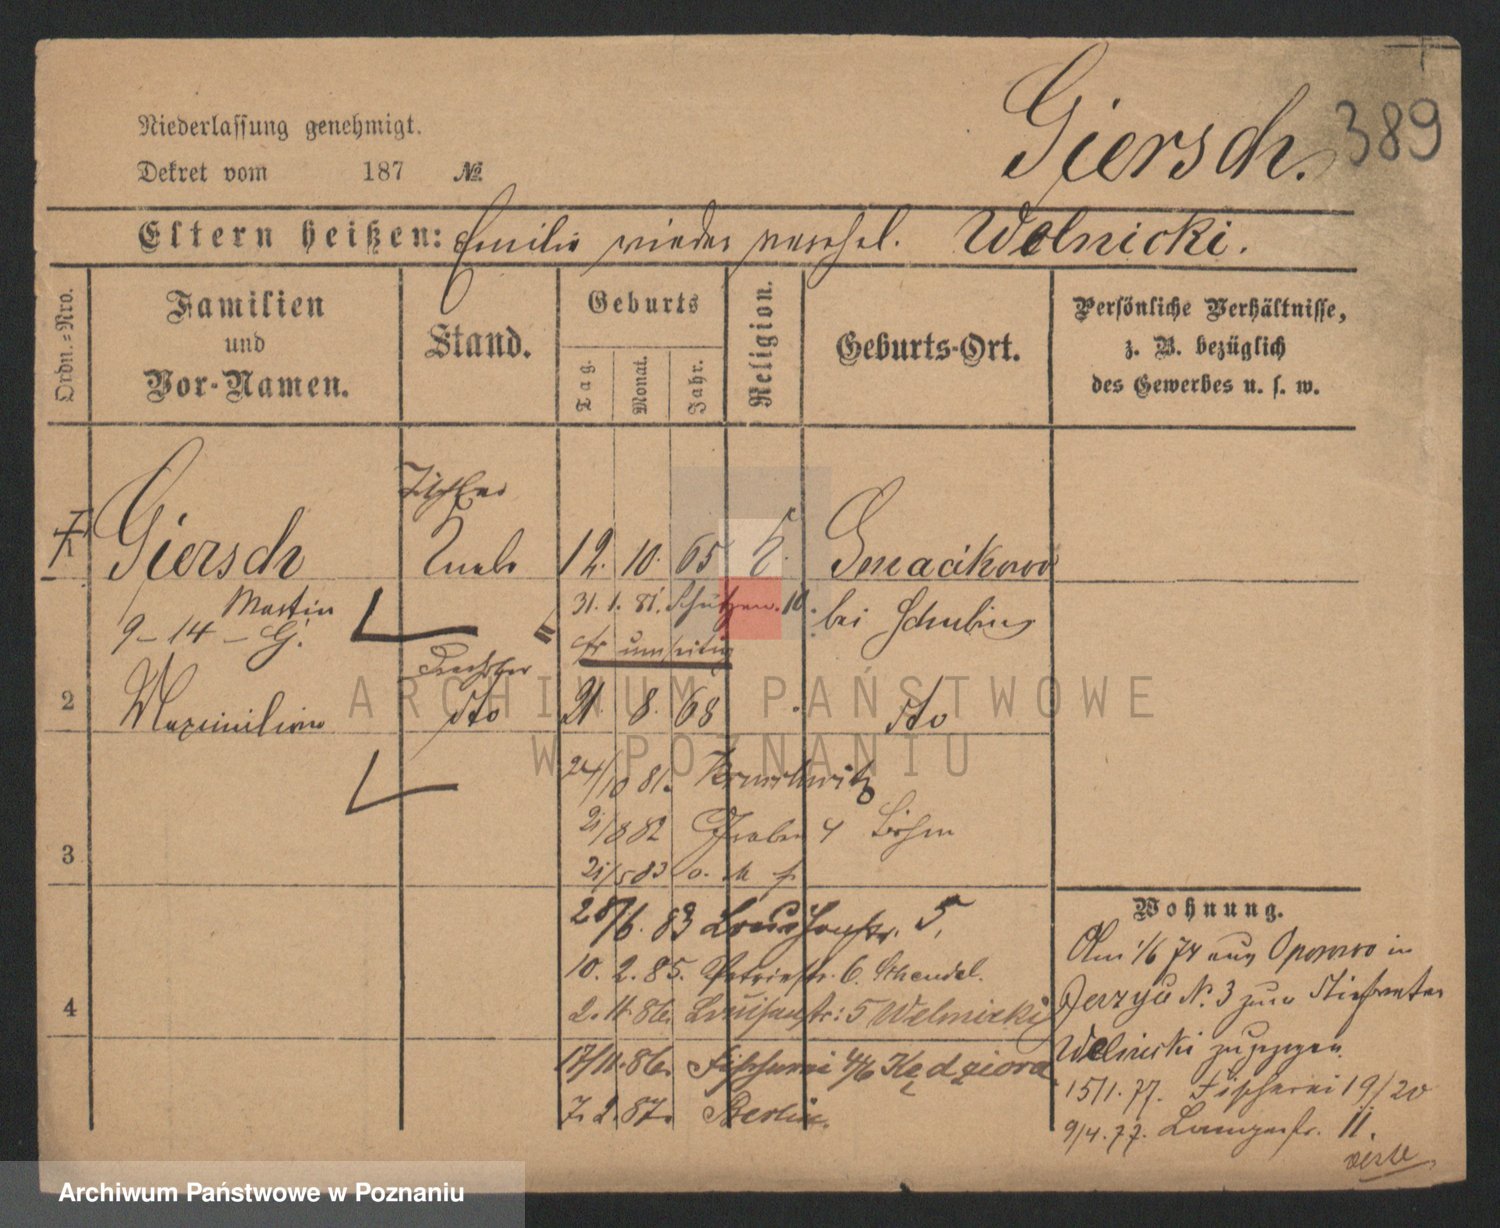 Giersch. 389
Niederlassung genehmigt.
Dekret vom 187 №
Eltern heißen: Emilie wieder verehel. Welnicki.
Ordn.=Nro.
Familien und Vor-Namen.
Stand.
Geburts
Tag.
Monat.
Jahr.
Religion.
Geburts-Ort.
Persönliche Verhältnisse,
z. B. bezüglich
des Gewerbes u. s. w.
Tischler
1 Giersch Knabe 12. 10. 65 K. Smacikowo
Martin 31. 1. 81. Schützen. 10. bei Schubin
9-14-G.
umseitig
2 Maximilian dto 21. 8. 68 dto
24/10 81.
21/8 82 Graben 4 Böhm
3
21/5 83 o. M
28/6. 83 Louisenstr. 5.
10. 2. 85. Petristr. 6. Schendel.
4
2. 11. 86. Louisenstr: 5 Welnicki
17/11. 86. Fischerei 4/6 Kędziora
7. 2. 87. Berlin.
Wohnung.
Am 1/6 74 aus Oporowo in
Jerzyce N. 3 zum Stiefvater
Welnicki zugezogen.
15/1. 77. Fischerei 19/20
9/4. 77. Langestr. 11.
verte
ARCHIWUM PAŃSTWOWE
W POZNANIU
Archiwum Państwowe w Poznaniu